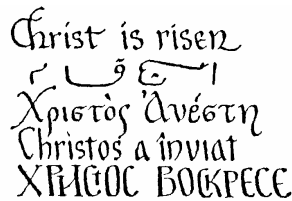 Christ is risen
Χριστὸς Ἀνέστη
Christos a înviat
ХРИСТОС ВОСКРЕСЕ